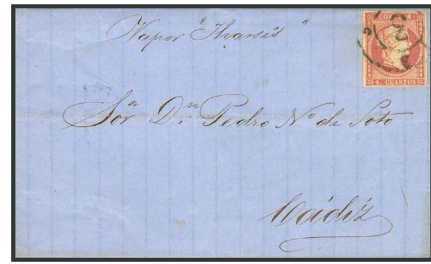 Vapor "Tharsis"
Sor. Dn. Pedro No. de Soto
Cádiz
4 CUARTOS